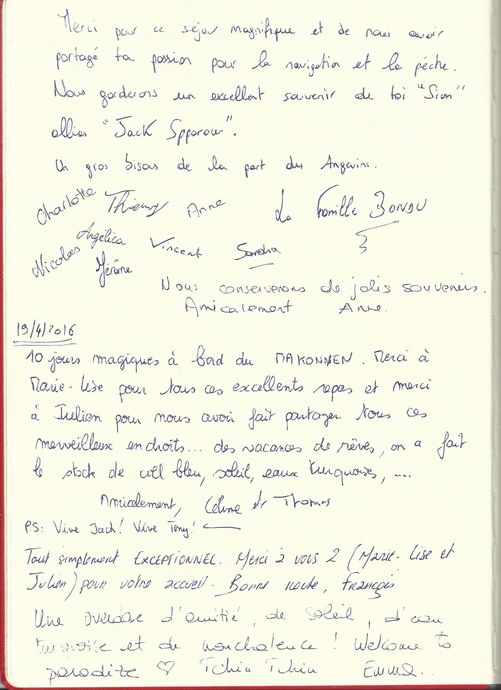 Merci pour ce séjour magnifique et de nous avoir
partagé ta passion pour la navigation et la pêche.
Nous garderons un excellent souvenir de toi "Sion"
allias "Jack Spparow".
Un gros bisous de la part des Angevins.
Charlotte Thierry Anne La Famille BONDU
Nicolas Angélica Vincent Sandra
Jérôme
Nous conserverons de jolis souvenirs.
Amicalement Anne.
19/4/2016
10 jours magiques à bord du MAKONNEN. Merci à
Marie-Lise pour tous ces excellents repas et merci
à Julien pour nous avoir fait partager tous ces
merveilleux endroits... des vacances de rêves, on a fait
le stock de ciel bleu, soleil, eaux turquoises, ....
Amicalement, Céline et Thomas
PS: Vive Jack! Vive Tony!
Tout simplement EXCEPTIONNEL. Merci à vous 2 (Marie-Lise et
Julien) pour votre accueil. Bonne route, François
Une overdose d'amitié, de soleil, d'eau
turquoise et de nonchalence! Welcome to
paradize ♡ Tchin Tchin Emma..